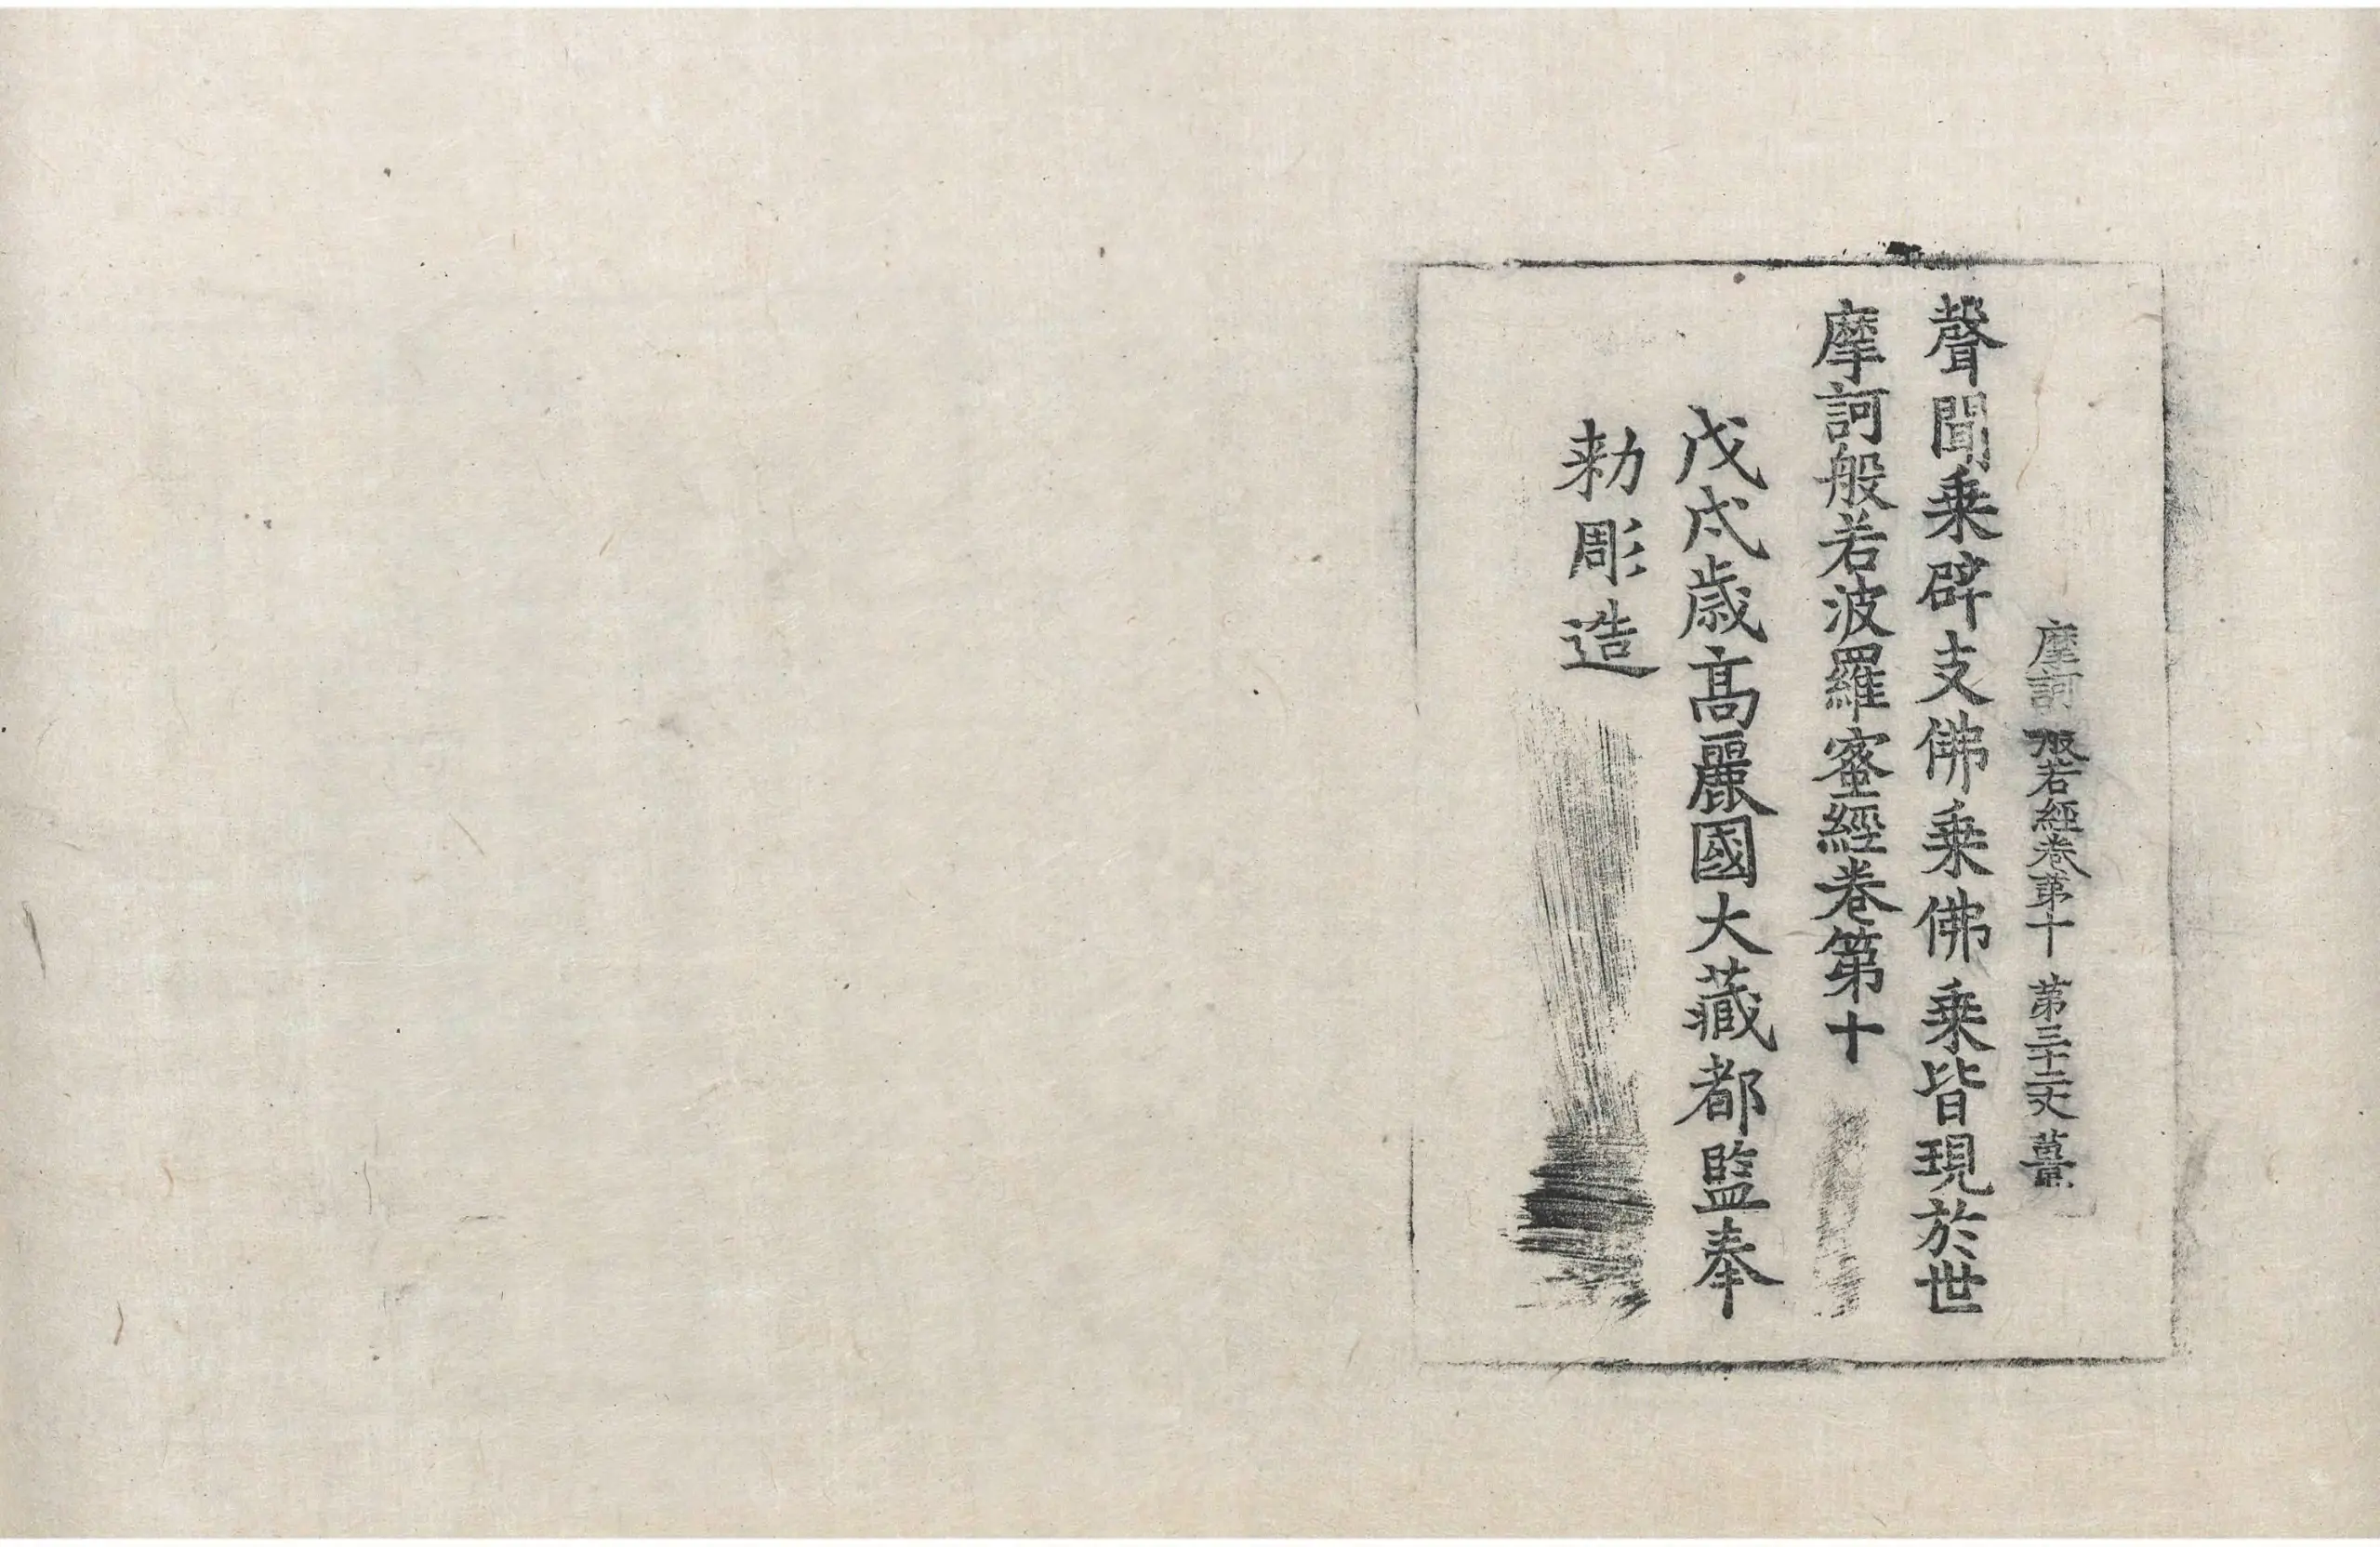 摩訶般若經卷第十 第三十二丈 薑
聲聞乗辟支佛乗佛乗皆現於世
摩訶般若波羅蜜經卷第十
戊戌歲高麗國大藏都監奉
勑彫造